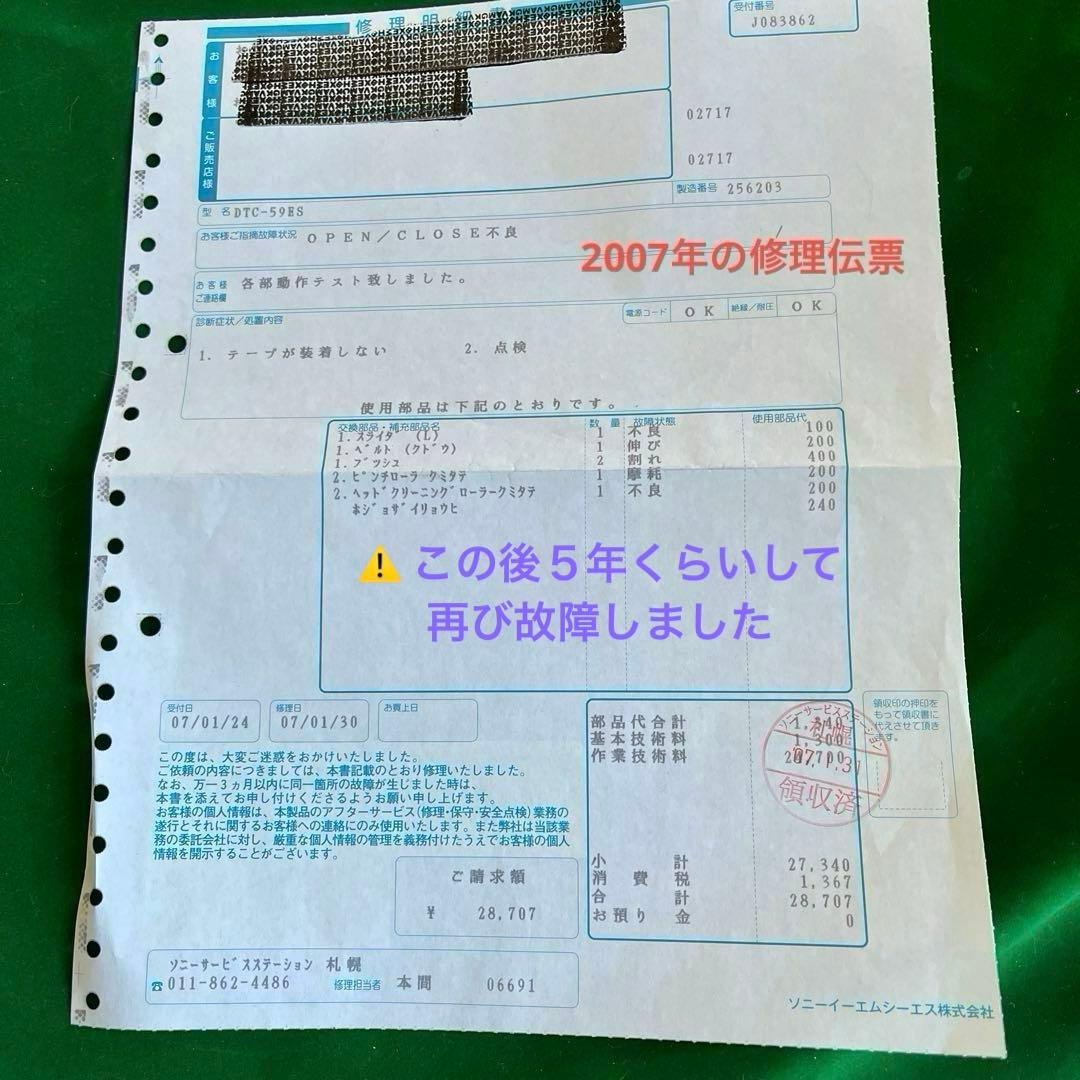 修理明細書
受付番号
J083862
お客様
ご販売店様
02717
02717
製造番号 256203
型 名 DTC-59ES
お客様ご指摘故障状況 OPEN／CLOSE不良
/
2007年の修理伝票
お客様ご連絡欄 各部動作テスト致しました。
電源コード OK 絶縁/耐圧 OK
診断症状/処置内容
1. テープが装着しない 2. 点検
使用部品は下記のとおりです。
交換部品・補充部品名 数量 故障状態 使用部品代
1. ｽﾗｲﾀﾞ (L) 1 不良 100
1. ﾍﾞﾙﾄ (ｸﾄﾞｳ) 1 伸び 200
1. ﾌﾞｯｼｭ 2 割れ 400
2. ﾋﾟﾝﾁﾛｰﾗ ｸﾐﾀﾃ 1 摩耗 200
2. ﾍｯﾄﾞｸﾘｰﾆﾝｸﾞﾛｰﾗｰｸﾐﾀﾃ 1 不良 200
ﾎｼﾞｮｻﾞｲﾘｮｳﾋ 240
⚠️ この後５年くらいして
再び故障しました
受付日 07/01/24
修理日 07/01/30
お買上日
部品代合計 1,340
基本技術料
作業技術料
ソニーサービスステーション
札幌
'07.1.31
領収済
領収印の押印を
もって領収書に
代えさせて頂き
ます。
この度は、大変ご迷惑をおかけいたしました。
ご依頼の内容につきましては、本書記載のとおり修理いたしました。
なお、万一3ヵ月以内に同一箇所の故障が生じました時は、
本書を添えてお申し付けくださるようお願い申し上げます。
お客様の個人情報は、本製品のアフターサービス(修理・保守・安全点検)業務の
遂行とそれに関するお客様への連絡にのみ使用いたします。また弊社は当該業
務の委託会社に対し、厳重な個人情報の管理を義務付けたうえでお客様の個人
情報を開示することがございます。
ご請求額
¥ 28,707
小計 27,340
消費税 1,367
合計 28,707
お預り金 0
ｿﾆｰｻｰﾋﾞｽｽﾃｰｼｮﾝ 札幌
☎011-862-4486 修理担当者 本間 06691
ソニーイーエムシーエス株式会社